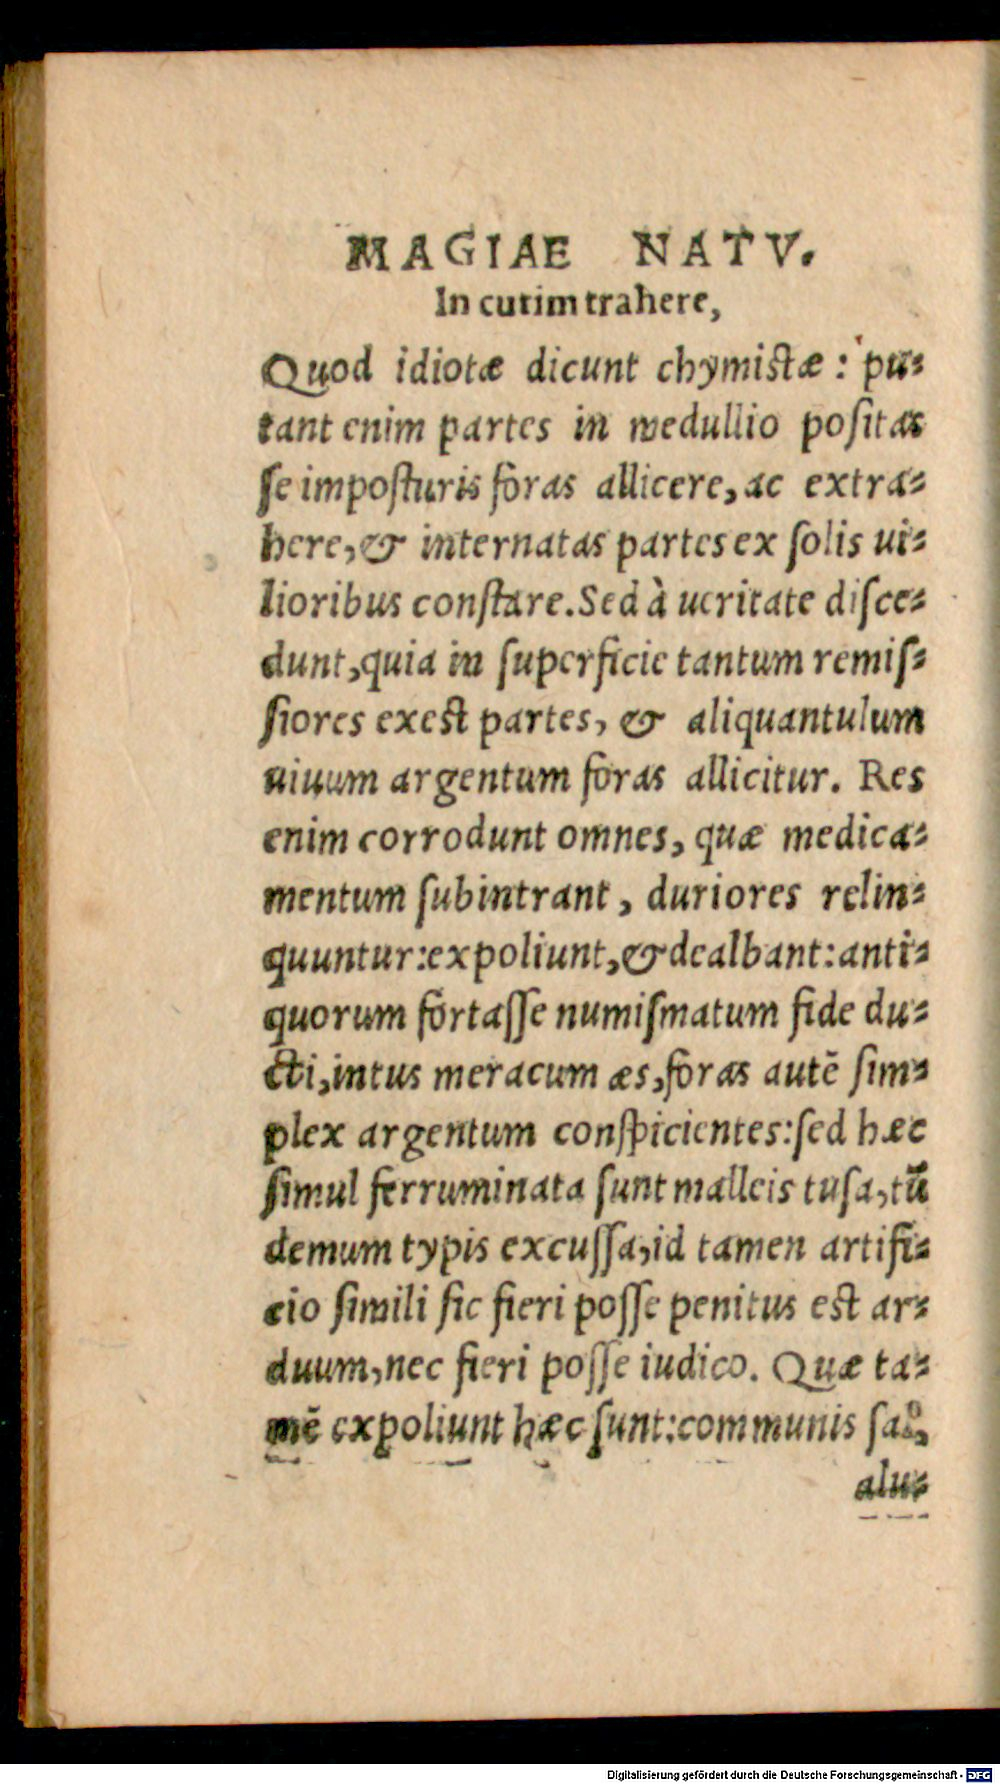 MAGIAE NATV.
In cutim trahere,
Quod idiotæ dicunt chymistæ: pu-
tant enim partes in medullio positas
se imposturis foras allicere, ac extra-
here, & internatas partes ex solis ui-
lioribus constare. Sed à ueritate disce-
dunt, quia in superficie tantum remis-
siores exest partes, & aliquantulum
uiuum argentum foras allicitur. Res
enim corrodunt omnes, quæ medica-
mentum subintrant, duriores relin-
quuntur: expoliunt, & dealbant: anti-
quorum fortasse numismatum fide du-
cti, intus meracum æs, foras autē sim-
plex argentum conspicientes: sed hæc
simul ferruminata sunt malleis tusa, tū
demum typis excussa, id tamen artifi-
cio simili sic fieri posse penitus est ar-
duum, nec fieri posse iudico. Quæ ta-
mē expoliunt hæc sunt: communis sal,
alu-
Digitalisierung gefördert durch die Deutsche Forschungsgemeinschaft - DFG